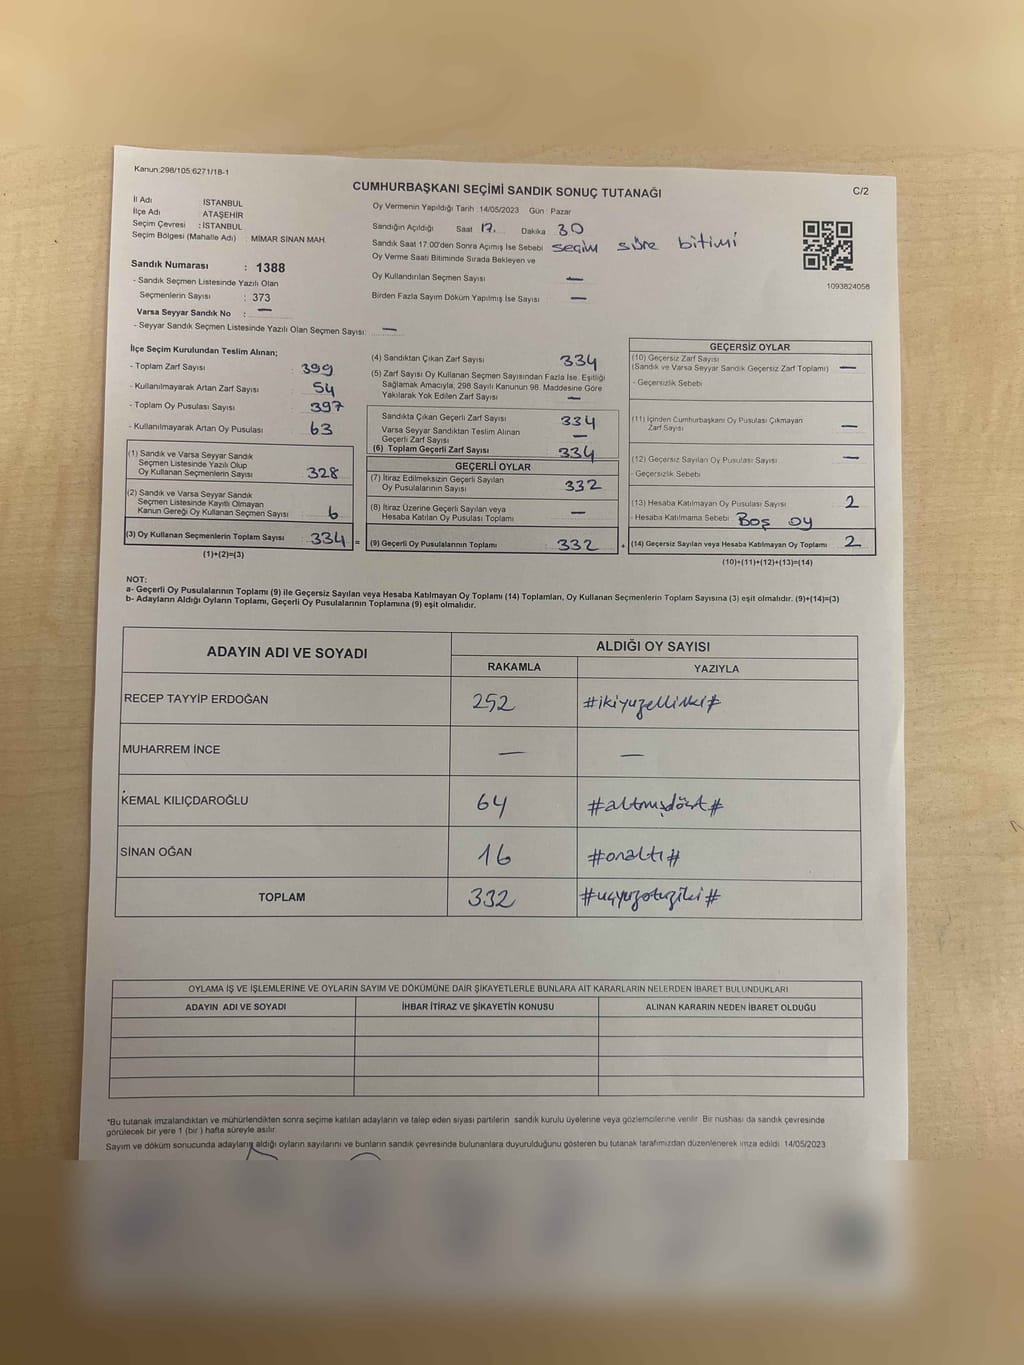 Kanun:298/105;6271/18-1
CUMHURBAŞKANI SEÇİMİ SANDIK SONUÇ TUTANAĞI
C/2
İl Adı İSTANBUL
İlçe Adı ATAŞEHİR
Seçim Çevresi : İSTANBUL
Seçim Bölgesi (Mahalle Adı) : MİMAR SİNAN MAH.
Sandık Numarası : 1388
- Sandık Seçmen Listesinde Yazılı Olan
Seçmenlerin Sayısı : 373
Varsa Seyyar Sandık No : —
- Seyyar Sandık Seçmen Listesinde Yazılı Olan Seçmen Sayısı: —
Oy Vermenin Yapıldığı Tarih : 14/05/2023 Gün : Pazar
Sandığın Açıldığı Saat 17. Dakika 30
Sandık Saat 17:00'den Sonra Açımış İse Sebebi seçim süre bitimi
Oy Verme Saati Bitiminde Sırada Bekleyen ve
Oy Kullandırılan Seçmen Sayısı —
Birden Fazla Sayım Döküm Yapılmış İse Sayısı —
1093824058
İlçe Seçim Kurulundan Teslim Alınan;
- Toplam Zarf Sayısı : 399
- Kullanılmayarak Artan Zarf Sayısı : 54
- Toplam Oy Pusulası Sayısı : 397
- Kullanılmayarak Artan Oy Pusulası : 63
(1) Sandık ve Varsa Seyyar Sandık
Seçmen Listesinde Yazılı Olup
Oy Kullanan Seçmenlerin Sayısı : 328
(2) Sandık ve Varsa Seyyar Sandık
Seçmen Listesinde Kayıtlı Olmayan
Kanun Gereği Oy Kullanan Seçmen Sayısı : 6
(3) Oy Kullanan Seçmenlerin Toplam Sayısı : 334 =
(1)+(2)=(3)
(4) Sandıktan Çıkan Zarf Sayısı 334
(5) Zarf Sayısı Oy Kullanan Seçmen Sayısından Fazla İse, Eşitliği
Sağlamak Amacıyla, 298 Sayılı Kanunun 98. Maddesine Göre
Yakılarak Yok Edilen Zarf Sayısı —
Sandıkta Çıkan Geçerli Zarf Sayısı : 334
Varsa Seyyar Sandıktan Teslim Alınan
Geçerli Zarf Sayısı : —
(6) Toplam Geçerli Zarf Sayısı : 334
GEÇERLİ OYLAR
(7) İtiraz Edilmeksizin Geçerli Sayılan
Oy Pusulalarının Sayısı : 332
(8) İtiraz Üzerine Geçerli Sayılan veya
Hesaba Katılan Oy Pusulası Toplamı : —
(9) Geçerli Oy Pusulalarının Toplamı : 332 +
GEÇERSİZ OYLAR
(10) Geçersiz Zarf Sayısı
(Sandık ve Varsa Seyyar Sandık Geçersiz Zarf Toplamı) —
- Geçersizlik Sebebi
(11) İçinden Cumhurbaşkanı Oy Pusulası Çıkmayan
Zarf Sayısı —
(12) Geçersiz Sayılan Oy Pusulası Sayısı —
- Geçersizlik Sebebi
(13) Hesaba Katılmayan Oy Pusulası Sayısı 2
- Hesaba Katılmama Sebebi Boş oy
(14) Geçersiz Sayılan veya Hesaba Katılmayan Oy Toplamı 2
(10)+(11)+(12)+(13)=(14)
NOT:
a- Geçerli Oy Pusulalarının Toplamı (9) ile Geçersiz Sayılan veya Hesaba Katılmayan Oy Toplamı (14) Toplamları, Oy Kullanan Seçmenlerin Toplam Sayısına (3) eşit olmalıdır. (9)+(14)=(3)
b- Adayların Aldığı Oyların Toplamı, Geçerli Oy Pusulalarının Toplamına (9) eşit olmalıdır.
ADAYIN ADI VE SOYADI ALDIĞI OY SAYISI
RAKAMLA YAZIYLA
RECEP TAYYİP ERDOĞAN 252 #ikiyüzelliiki#
MUHARREM İNCE — —
KEMAL KILIÇDAROĞLU 64 #altmışdört#
SİNAN OĞAN 16 #onaltı#
TOPLAM 332 #üçyüzotuziki#
OYLAMA İŞ VE İŞLEMLERİNE VE OYLARIN SAYIM VE DÖKÜMÜNE DAİR ŞİKAYETLERLE BUNLARA AİT KARARLARIN NELERDEN İBARET BULUNDUKLARI
ADAYIN ADI VE SOYADI İHBAR İTİRAZ VE ŞİKAYETİN KONUSU ALINAN KARARIN NEDEN İBARET OLDUĞU
*Bu tutanak imzalandıktan ve mühürlendikten sonra seçime katılan adayların ve talep eden siyasi partilerin sandık kurulu üyelerine veya gözlemcilerine verilir. Bir nüshası da sandık çevresinde
görülecek bir yere 1 (bir ) hafta süreyle asılır.
Sayım ve döküm sonucunda adayların aldığı oyların sayılarını ve bunların sandık çevresinde bulunanlara duyurulduğunu gösteren bu tutanak tarafımızdan düzenlenerek imza edildi. 14/05/2023